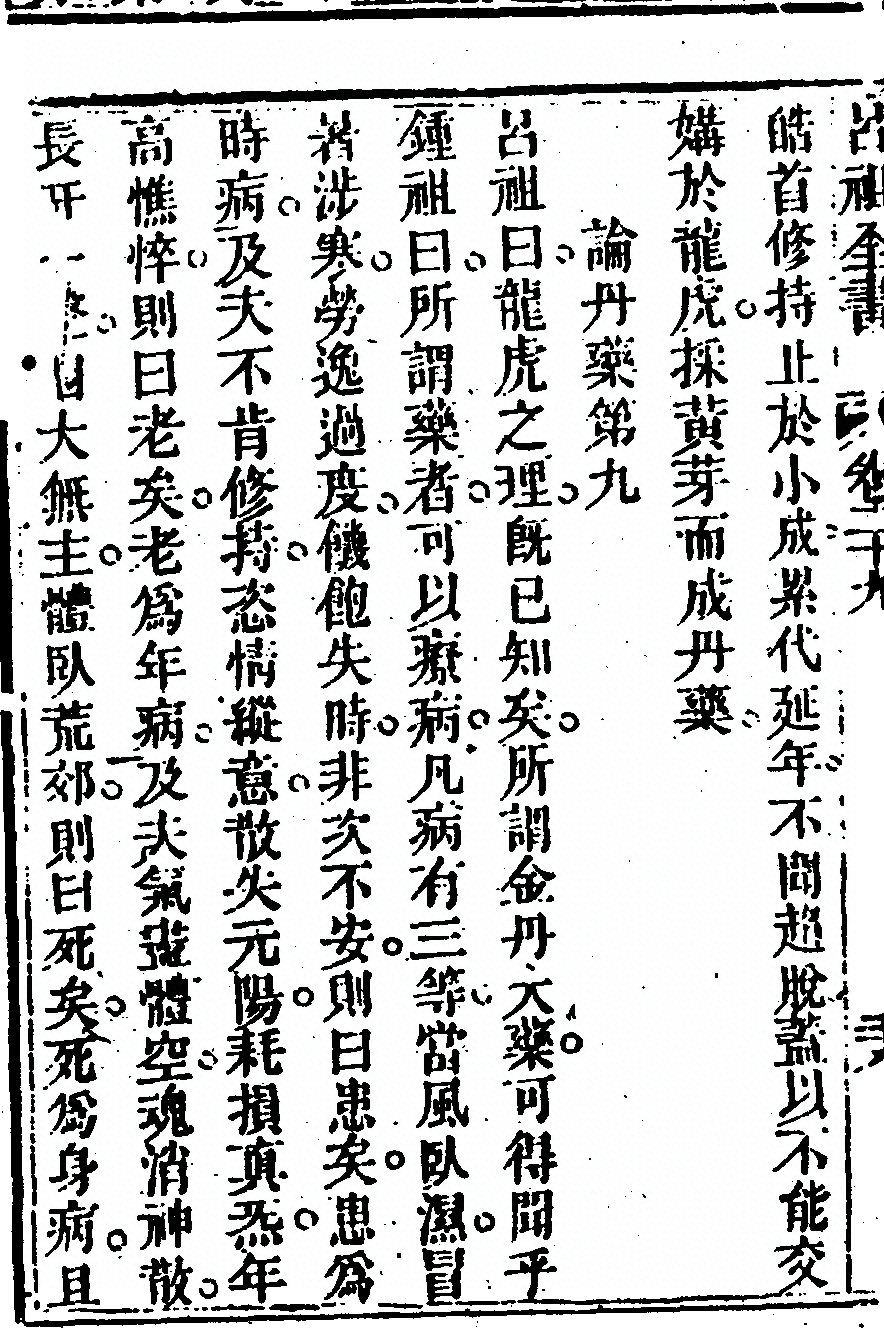 呂祖全書 卷二十九
皓首修持止於小成累代延年不聞超脫蓋以不能交
媾於龍虎採黃芽而成丹藥
論丹藥第九
呂祖曰龍虎之理旣已知矣所謂金丹大藥可得聞乎
鍾祖曰所謂藥者可以療病凡病有三等當風臥濕冒
暑涉寒勞逸過度饑飽失時非次不安則曰患矣患爲
時病及夫不肯修持恣情縱意散失元陽耗損真炁年
高憔悴則曰老矣老爲年病及夫氣盡體空魂消神散
長一大無主體臥荒郊則曰死矣死爲身病且